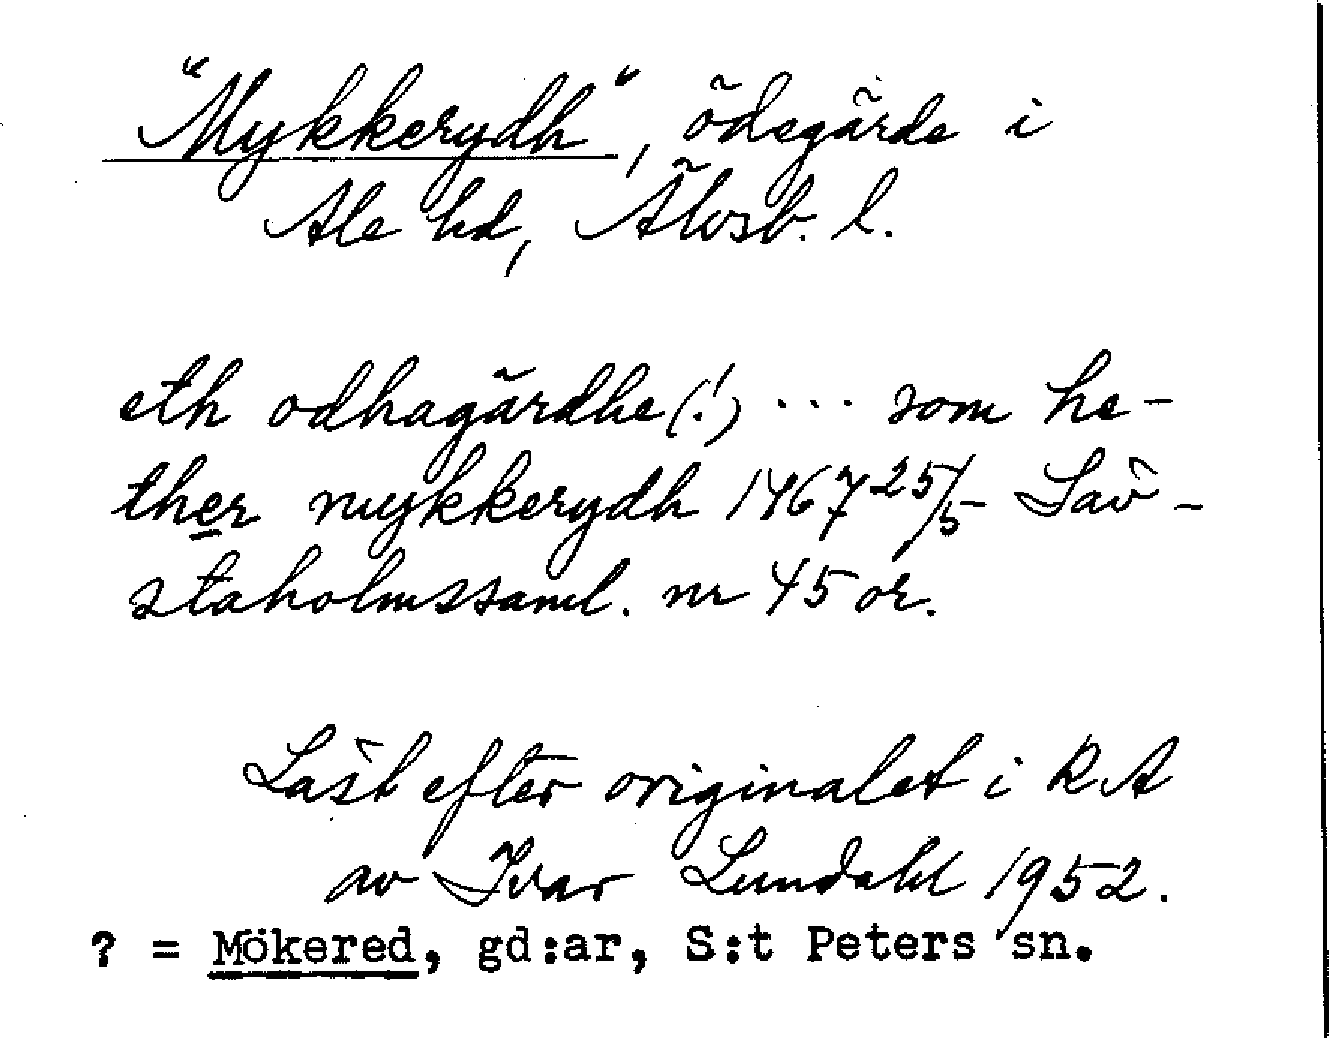 "Mykkerydh", ödegärde i
Ale hd, Älvsb. l.
eth odhagärdhe(!) ... som he-
ther mykkerydh 1467 25/5 Säv-
staholmssaml. nr 45 or.
Läst efter originalet i RA
av Ivar Lundahl 1952.
? = Mökered, gd:ar, S:t Peters sn.